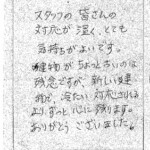 スタッフの皆さんの
対応が温く、とても
気持ちがよいです。
建物がちょっと古いのは
残念ですが、新しい建
物で、冷たい対応されるの
より、ずっと心に残ります。
ありがとうございました。